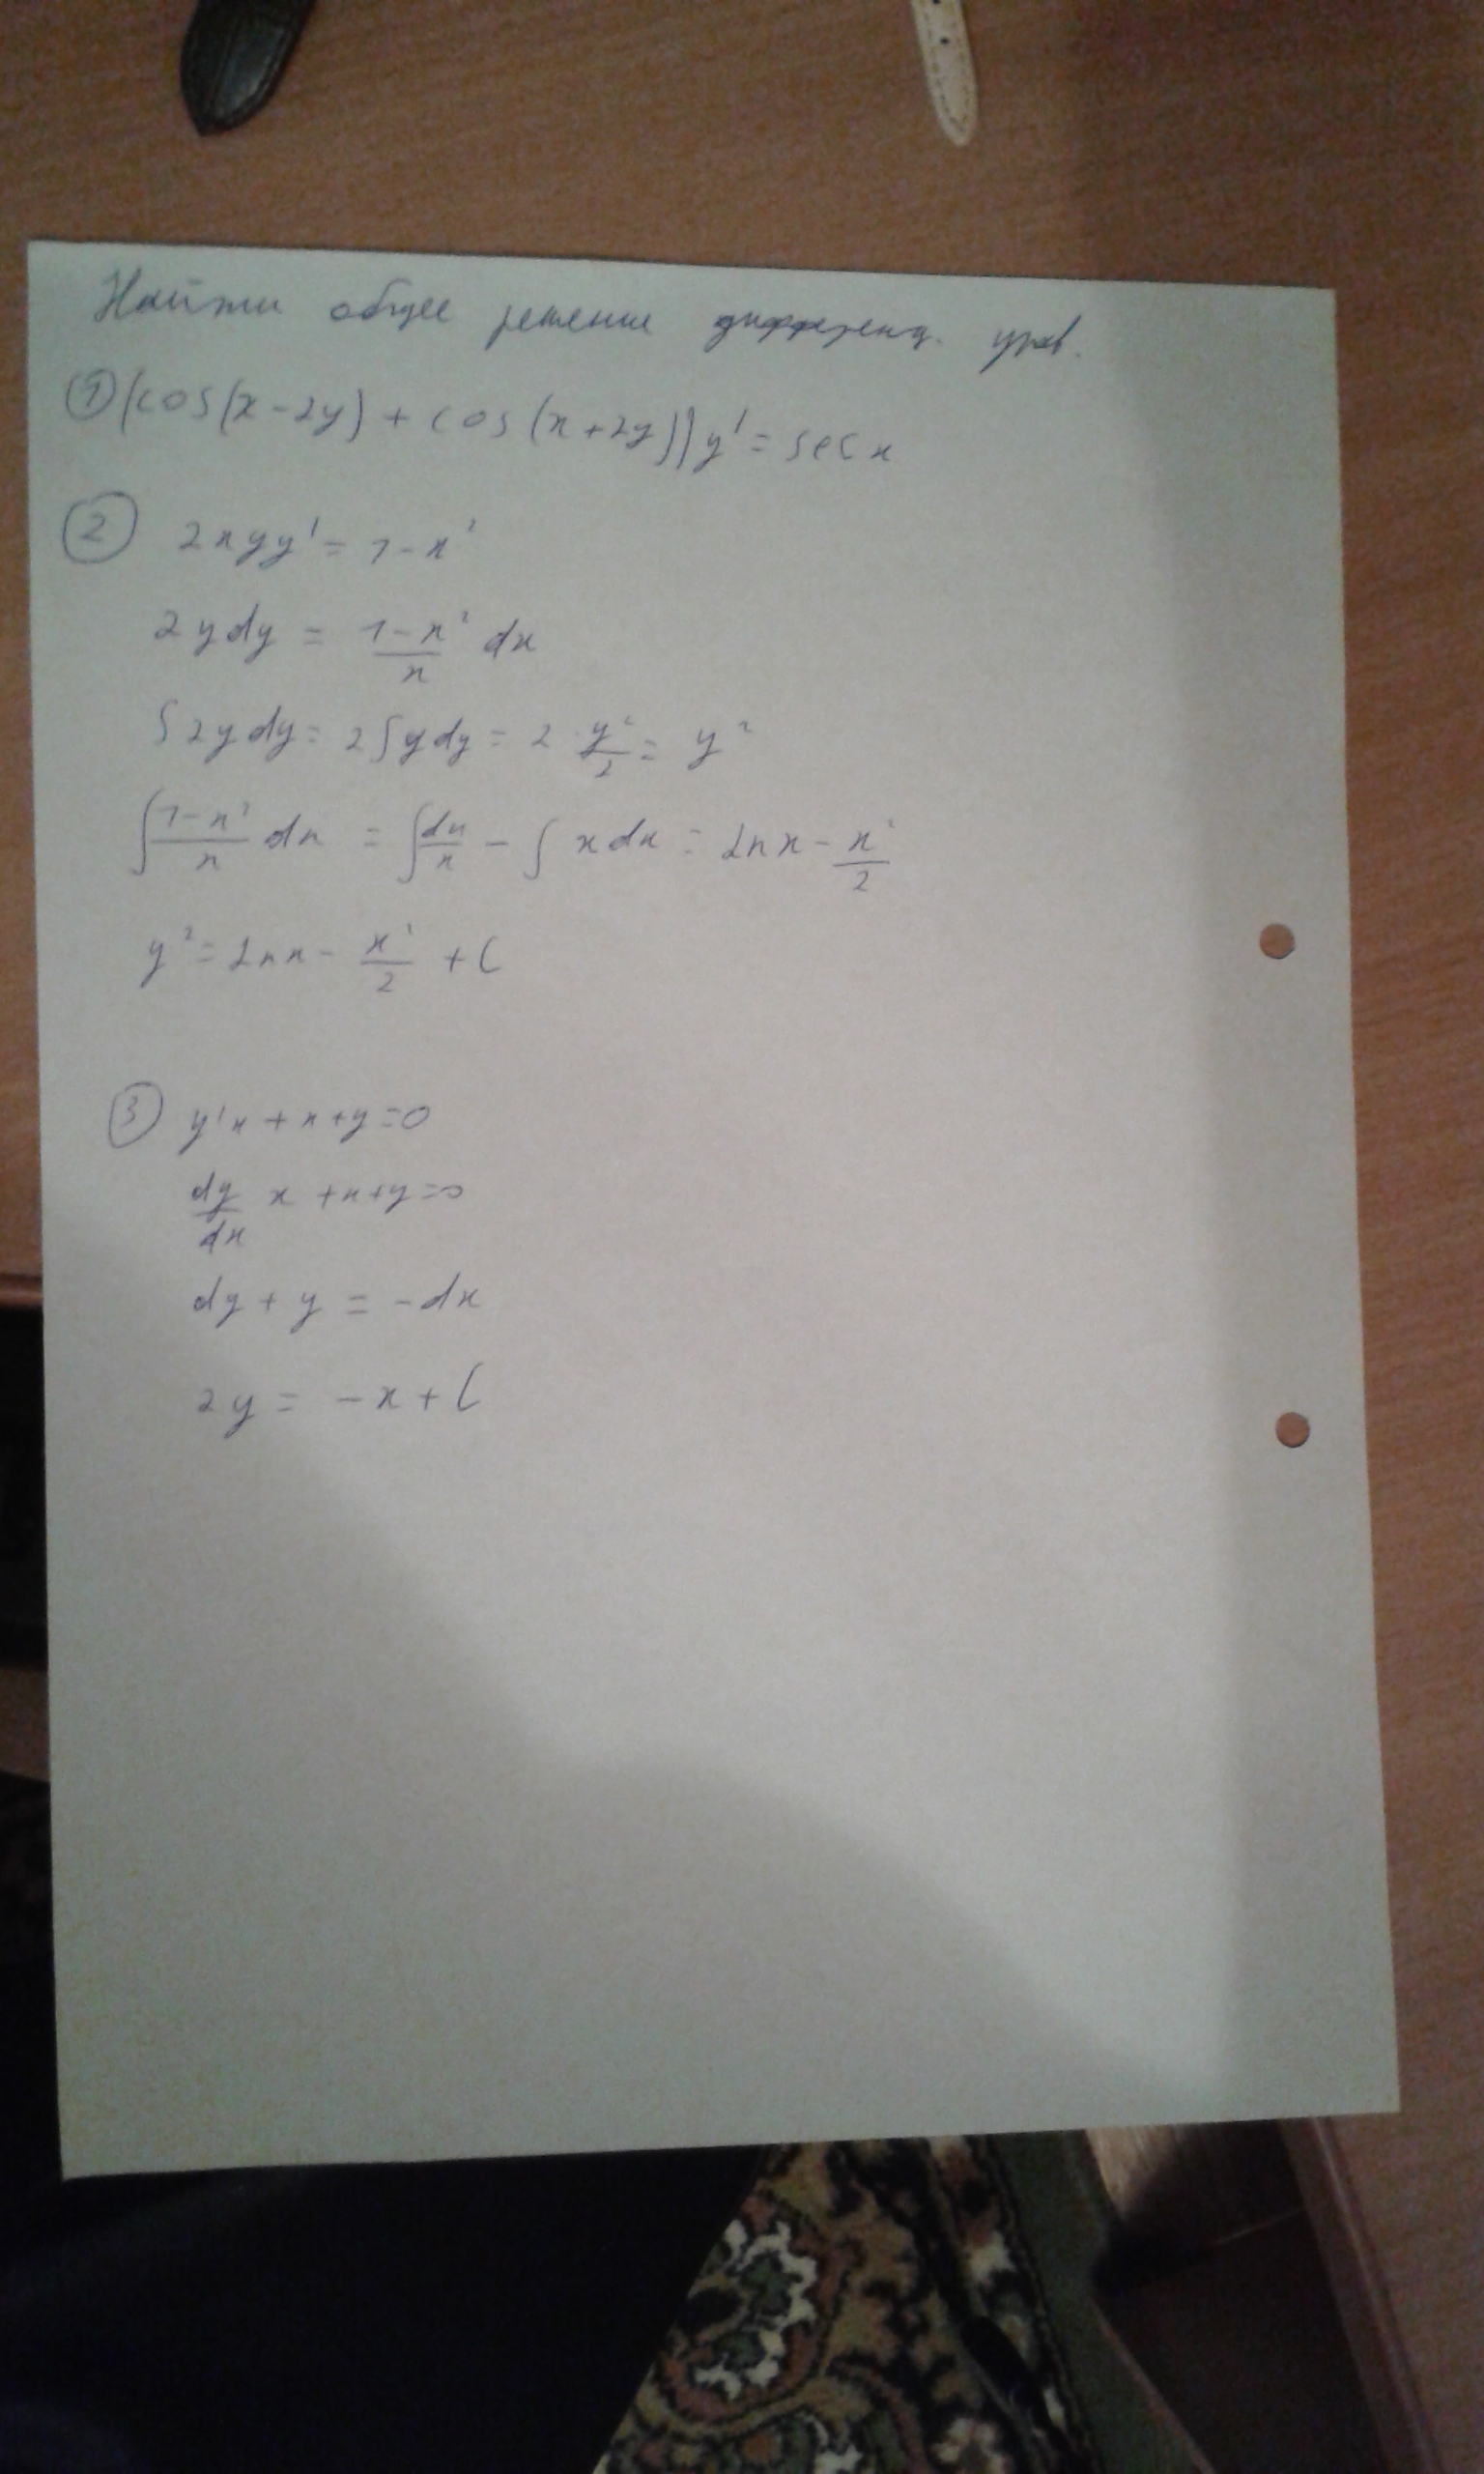 Найти общее решение дифференц. урав.
① (cos(x-2y) + cos(x+2y))y' = sec x
② 2xyy' = 1-x²
2y dy = \frac{1-x²}{x} dx
∫2y dy = 2∫y dy = 2·\frac{y²}{2} = y²
∫\frac{1-x²}{x} dx = ∫\frac{dx}{x} - ∫ x dx = Ln x - \frac{x²}{2}
y² = Ln x - \frac{x²}{2} + C
③ y'x + x + y = 0
\frac{dy}{dx} x + x + y = 0
dy + y = -dx
2y = -x + C